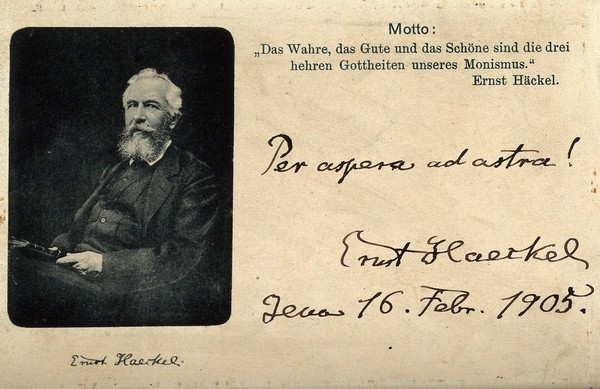 Motto:
„Das Wahre, das Gute und das Schöne sind die drei
hehren Gottheiten unseres Monismus.“
Ernst Häckel.
Per aspera ad astra!
Ernst Haeckel
Jena 16. Febr. 1905.
Ernst Haeckel.